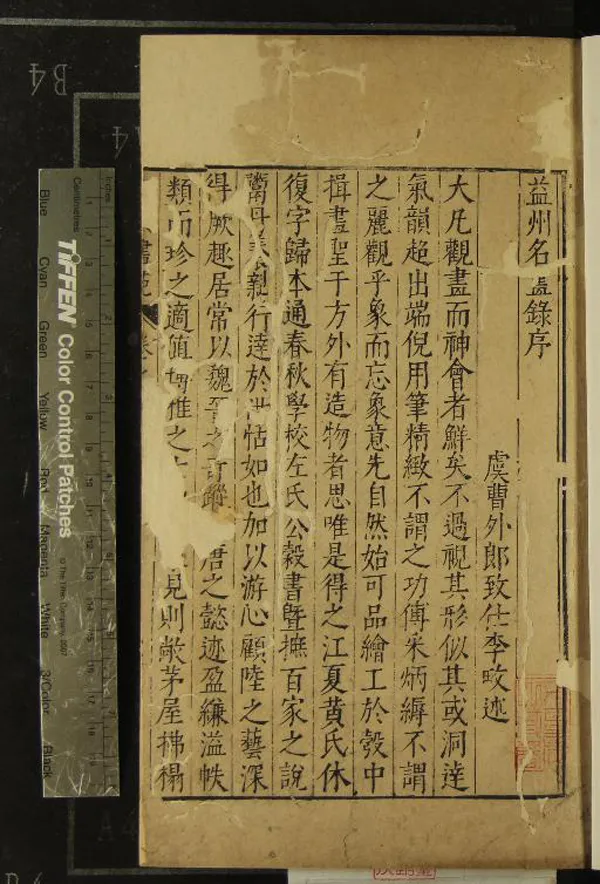 益州名畫錄序
虞曹外郎致仕李畋述
大凡觀畫而神會者鮮矣不過視其形似其或洞達
氣韻超出端倪用筆精緻不謂之功傅采炳縟不謂
之麗觀乎象而忘象意先自然始可品繪工於彀中
揖畫聖于方外有造物者思唯是得之江夏黃氏休
復字歸本通春秋學校左氏公穀書暨摭百家之說
鬻丹養親行達於世恬如也加以游心顧陸之藝深
得厥趣居常以魏晉之奇蹤唐之懿迹盈縑溢帙
類而珍之適值雅之見則敞茅屋拂榻
B4
A4
Inches
Centimetres
TIFFEN Color Control Patches
© The Tiffen Company, 2007
Blue Cyan Green Yellow Red Magenta White 3/Color Black